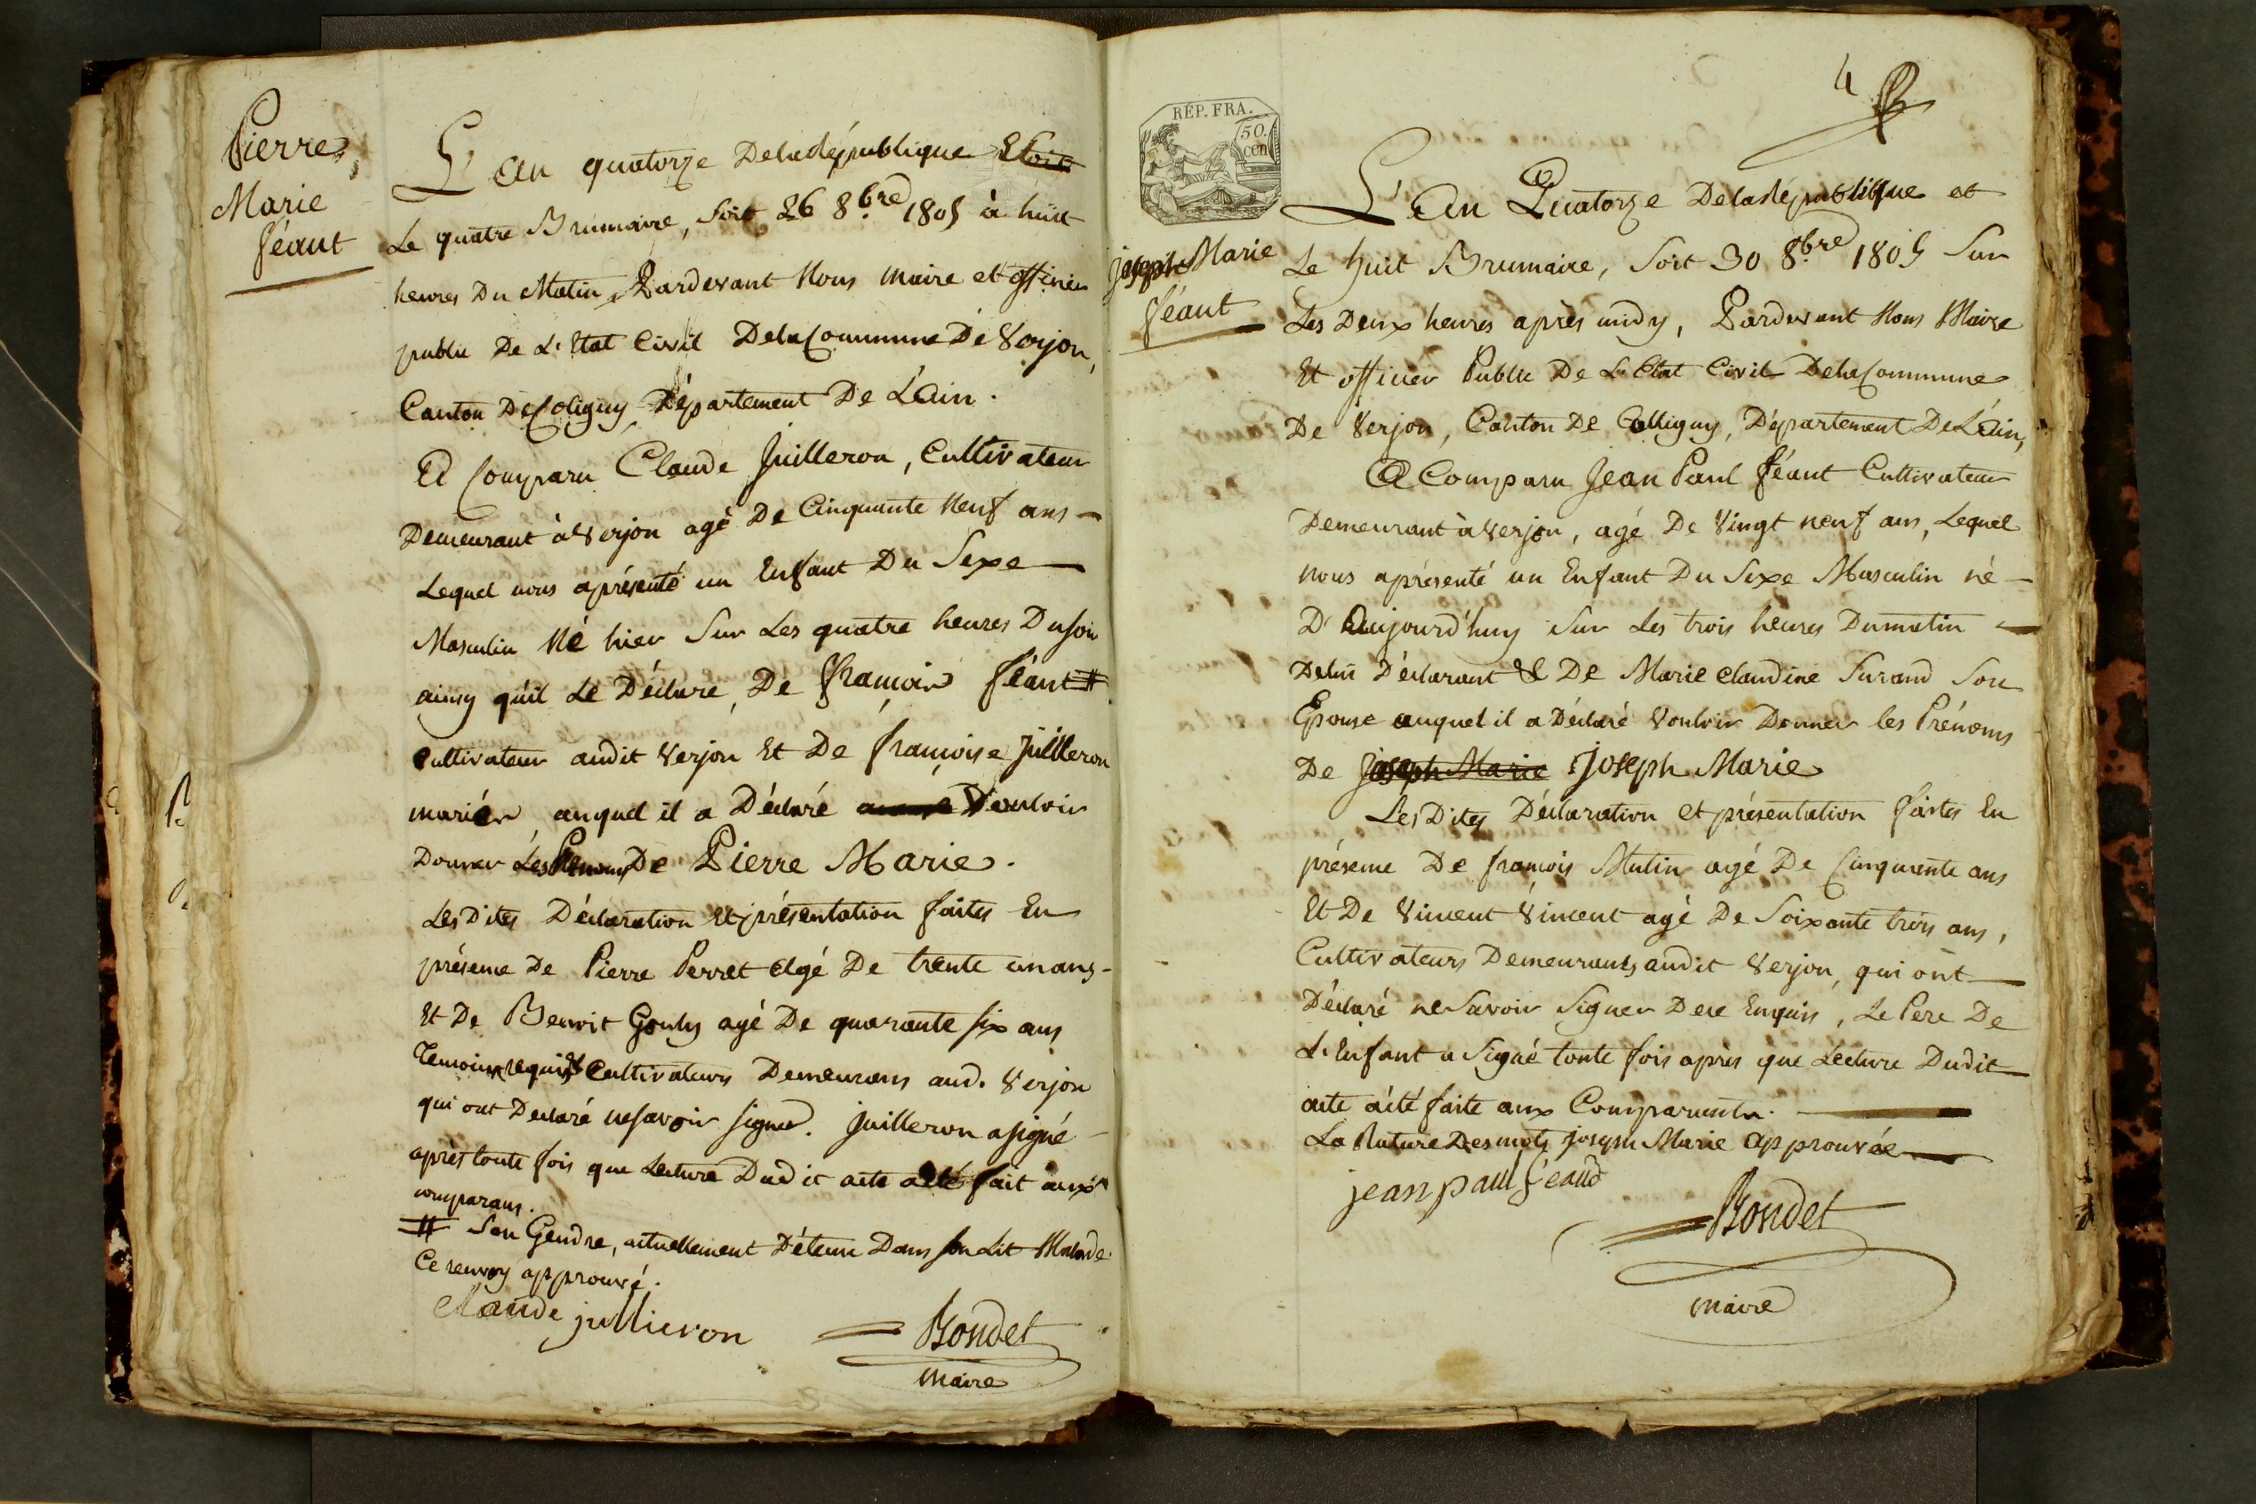 Pierre,
Marie
féant
L'an quatorze De la République Et Soit
Le quatre Brumaire, Soit 26 8bre 1805 à huit
heures Du Matin, Pardevant Nous maire et officier
public De L'Etat Civil De la Commune De Verjon,
Canton De Coligny, Département De L'Ain.
A Comparu Claude Juilleron, Cultivateur
Demeurant à Verjon agé De Cinquante Neuf ans
Lequel nous a présenté un Enfant Du Sexe
Masculin Né hier Sur Les quatre heures Du soir
ainsy qu'il Le Déclare, De françois féant #
Cultivateur audit Verjon Et De françoise Juilleron
mariés auquel il a Déclaré Vouloir
Donner Les Prénoms De Pierre Marie.
Les Dites Déclaration Et présentation faites En
présence De Pierre Perret Agé De trente un ans
Et De Benoit Gouly agé De quarante six ans
Temoins requis & Cultivateurs Demeurans aud. Verjon
qui ont Declaré ne savoir signer. Juilleron a signé
après toute fois que Lecture Dudit acte a été fait aux
comparans.
# Son Gendre, actuellement Détenu Dans son Lit Malade.
Ce renvoy approuvé.
Claude jullieron
Bondet
maire
RÉP. FRA.
50.
cen
4
Joseph Marie
féant
L'An Quatorze De la République et
Le huit Brumaire, Soit 30 8bre 1805 Sur
Les Deux heures après midy, Pardevant Nous Maire
Et officier Public De L'Etat Civil De la Commune
De Verjon, Canton De Colligny, Département De L'Ain,
A Comparu Jean Paul féant Cultivateur
Demeurant à Verjon, agé De Vingt neuf ans, Lequel
nous a présenté un Enfant Du Sexe Masculin né
D'Aujourd'huy Sur Les trois heures Du matin
De lui Déclarant & De Marie Claudine Surand Son
Epouse auquel il a Déclaré Vouloir Donner les Prénoms
De Joseph Marie Joseph Marie
Les Dites Déclaration et présentation faites En
présence De françois Mutin agé De Cinquante ans
Et De Vincent Vincent agé De Soixante trois ans,
Cultivateurs Demeurants audit Verjon, qui ont
Déclaré ne Savoir Signer De ce Enquis, Le Père De
L'Enfant a Signé toute fois après que Lecture Dudit
acte a été faite aux Comparants.
La Rature Des mots joseph Marie approuvée
jean paul féaud
Bondet
maire